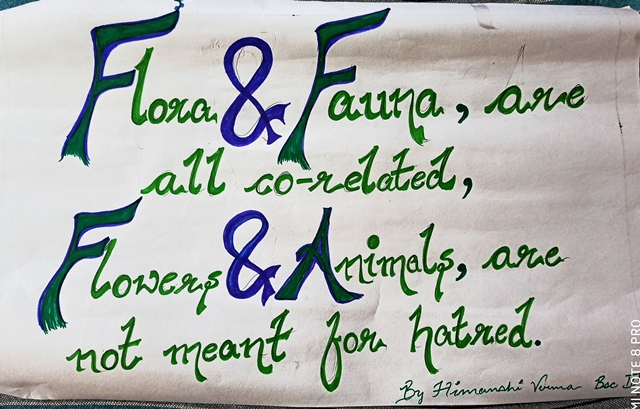 Flora & Fauna, are
all co-related,
Flowers & Animals, are
not meant for hatred.
By Himanshi Verma Bsc
MI NOTE 8 PRO